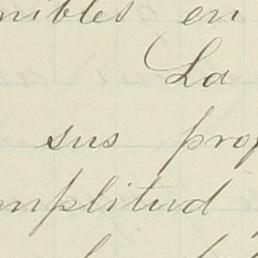 nibles en
La
sus prop
mplitud